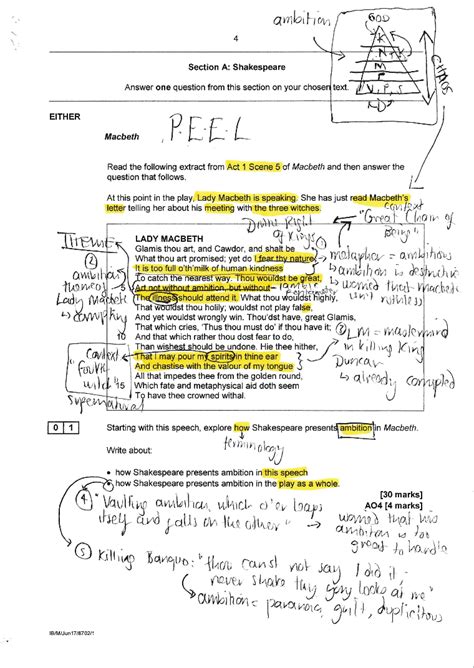 ambition
GOD
K
N
M
P
V, P, S
CHAOS
4
Section A: Shakespeare
Answer one question from this section on your chosen text.
EITHER
Macbeth
P.E.E.L
Read the following extract from Act 1 Scene 5 of Macbeth and then answer the
question that follows.
At this point in the play, Lady Macbeth is speaking. She has just read Macbeth's
letter telling her about his meeting with the three witches.
context
"Great Chain of
Being"
Divine Right
of Kings
THEME
②
ambition
themed
Lady Macbeth
LADY MACBETH
Glamis thou art, and Cawdor, and shalt be
What thou art promised; yet do I fear thy nature
It is too full o'th'milk of human kindness
To catch the nearest way. Thou wouldst be great,
Art not without ambition, but without
The illness should attend it. What thou wouldst highly,
That wouldst thou holily; wouldst not play false,
And yet wouldst wrongly win. Thou'dst have, great Glamis,
That which cries, 'Thus thou must do' if thou have it;
10 And that which rather thou dost fear to do,
Than wishest should be undone. Hie thee hither,
That I may pour my spirits in thine ear
And chastise with the valour of my tongue
All that impedes thee from the golden round,
15 Which fate and metaphysical aid doth seem
To have thee crowned withal.
metaphor = ambitious
ambition is destructive
worried that Macbeth
isn't ruthless
③ LM = mastermind
in killing King
Duncan
already corrupted
Context
fourth
witch
supernatural
0 1
Starting with this speech, explore how Shakespeare presents ambition in Macbeth.
terminology
Write about:
• how Shakespeare presents ambition in this speech
• how Shakespeare presents ambition in the play as a whole.
[30 marks]
AO4 [4 marks]
④ "Vaulting ambition, which o'er leaps
itself and falls on the other"
worried that his
ambition is too
great to handle
⑤ Killing Banquo: "thou canst not say I did it -
never shake thy gory locks at me"
ambition = paranoia, guilt, duplicitous
IB/M/Jun17/8702/1